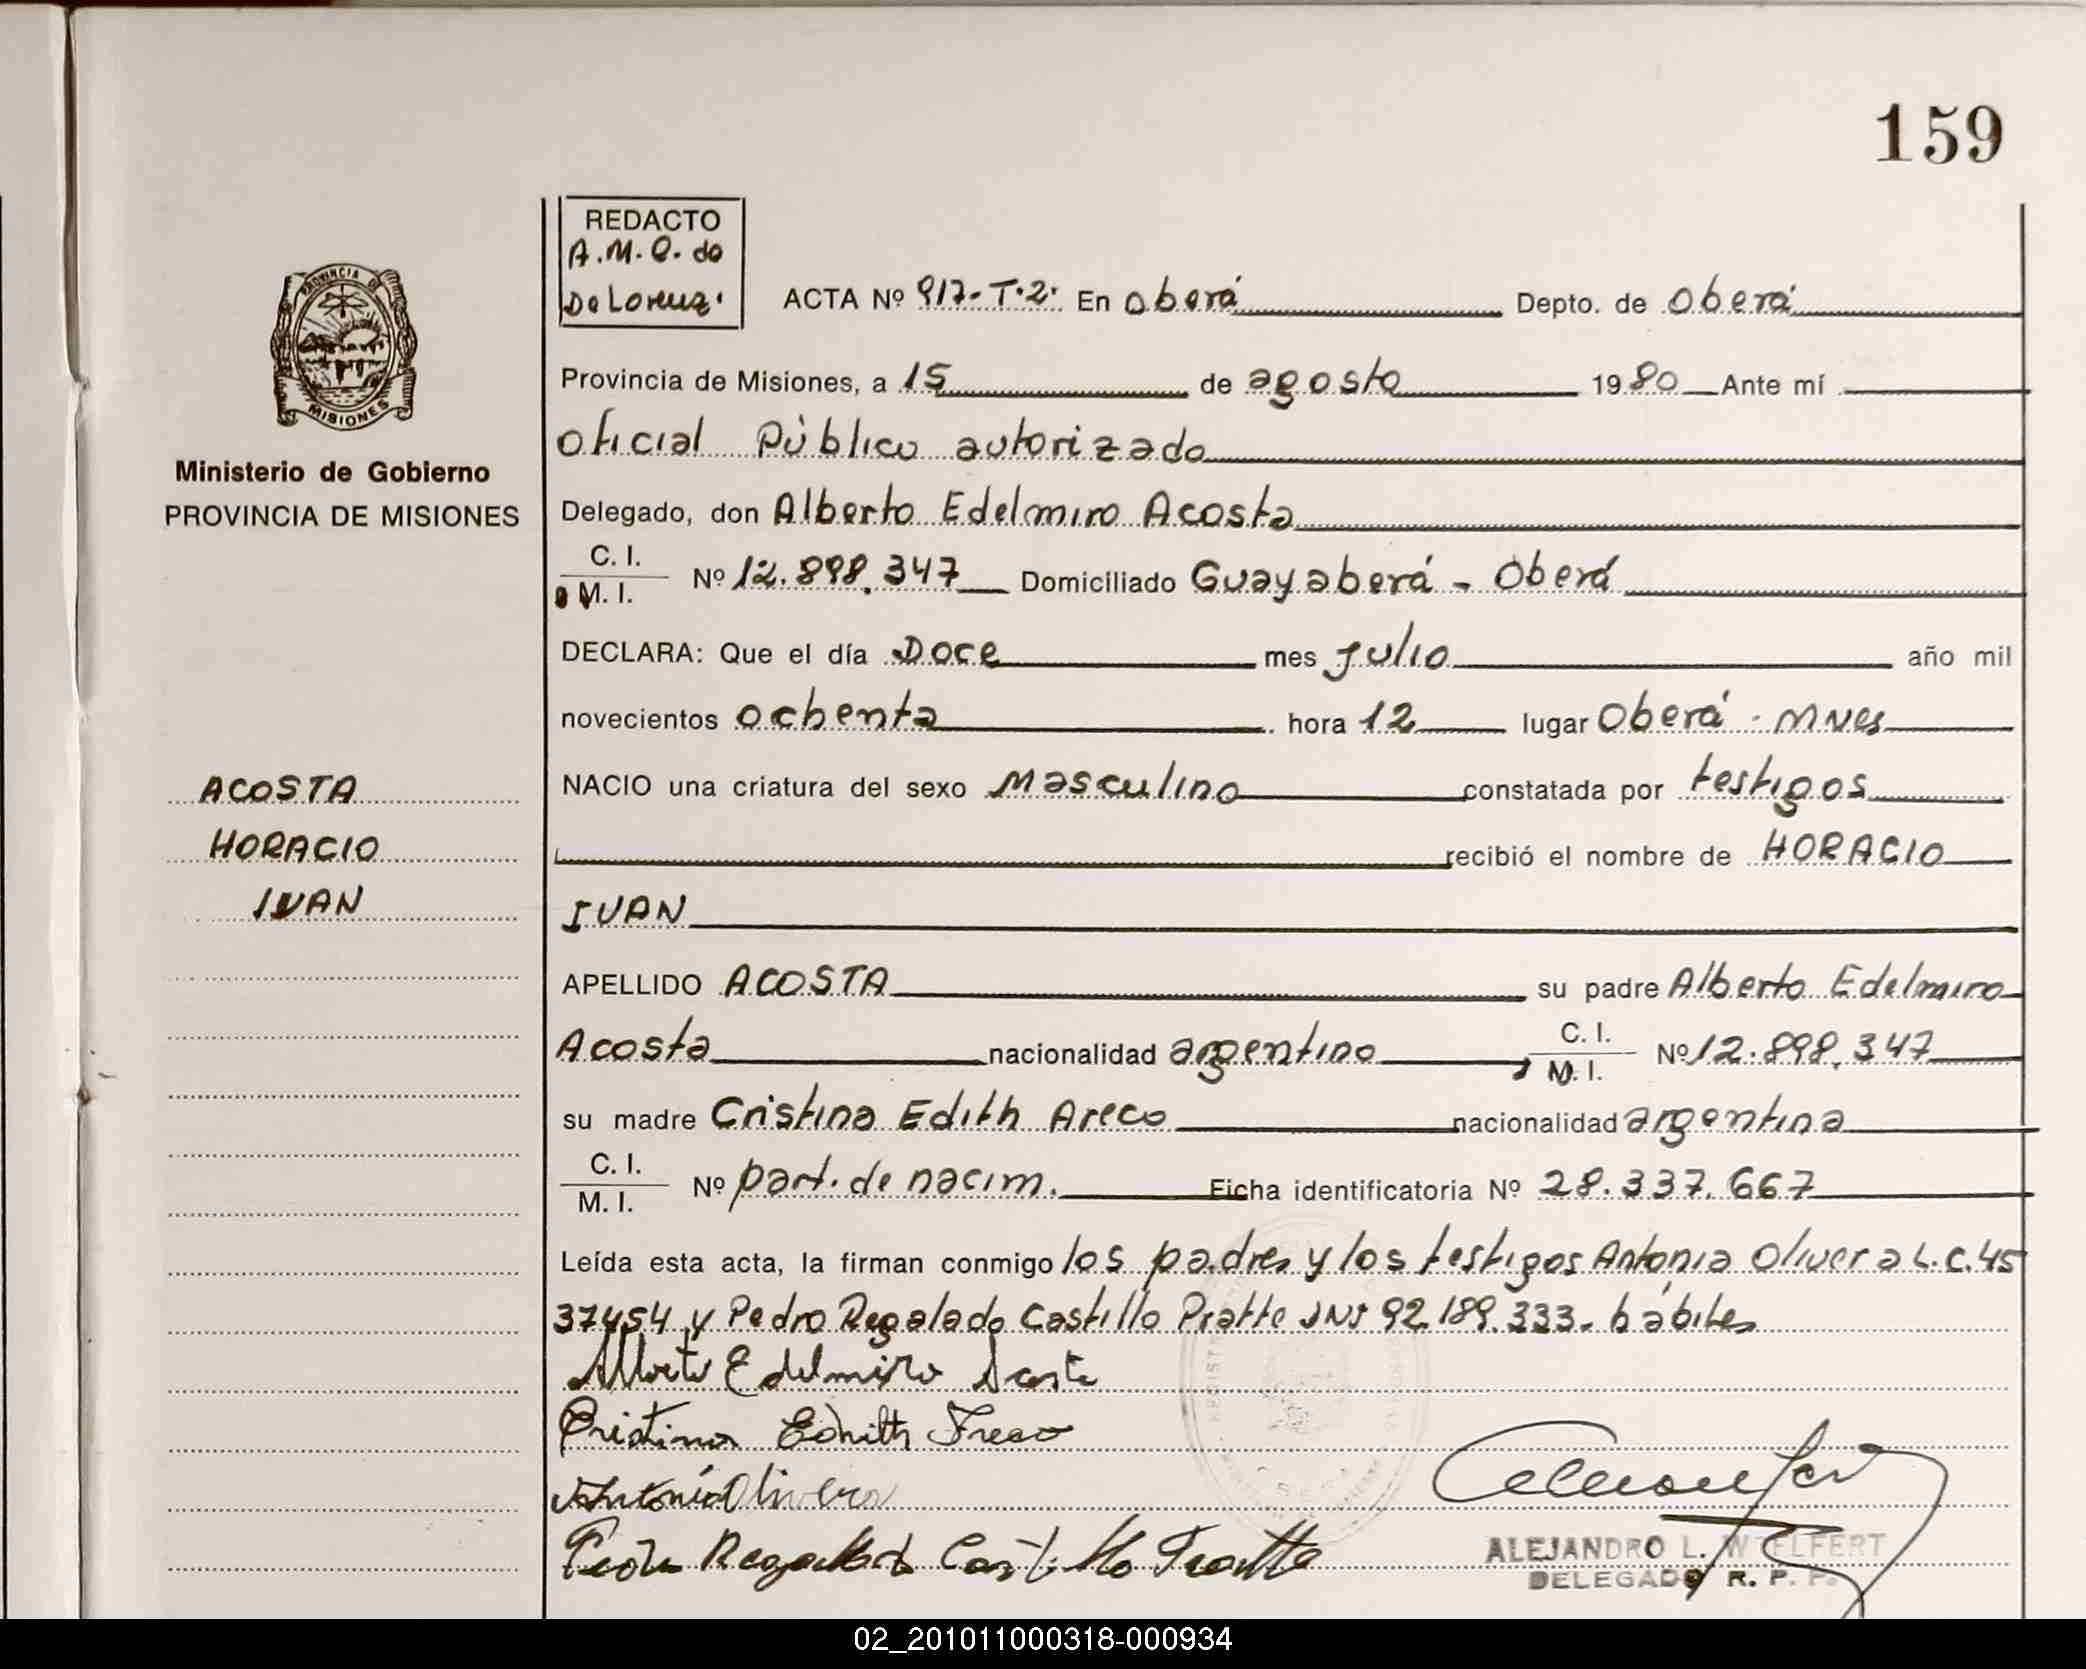 159
REDACTO
A.M.Q. de
De Lorenzi
PROVINCIA DE
MISIONES
Ministerio de Gobierno
PROVINCIA DE MISIONES
ACTA Nº 917-T.2. En Oberá Depto. de Oberá
Provincia de Misiones, a 15 de agosto 1980 Ante mí
Oficial Público autorizado
Delegado, don Alberto Edelmiro Acosta
C. I.
M. I. Nº 12.898.347 Domiciliado Guayaberá - Oberá
DECLARA: Que el día Doce mes julio año mil
novecientos ochenta hora 12 lugar Oberá - Mnes
ACOSTA
HORACIO
IVAN
NACIO una criatura del sexo masculino constatada por testigos
recibió el nombre de HORACIO
IVAN
APELLIDO ACOSTA su padre Alberto Edelmiro
Acosta nacionalidad argentino C. I. M. I. Nº 12.898.347
su madre Cristina Edith Areco nacionalidad argentina
C. I.
M. I. Nº part. de nacim. Ficha identificatoria Nº 28.337.667
Leída esta acta, la firman conmigo los padres y los testigos Antonia Olivera L.C. 45
37454 y Pedro Regalado Castillo Pratte DNI 92.189.333. hábiles
Alberto Edelmiro Acosta
Cristina Edhith Areco
Antonia Olivera
Pedro Regalado Castillo Pratte
ALEJANDRO L. WELFERT
DELEGADO R. P. P.
02_201011000318-000934